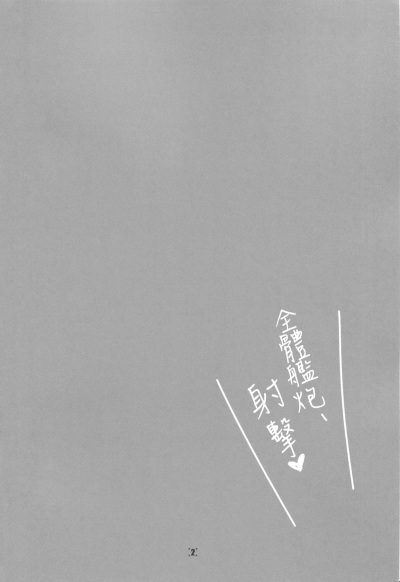 全體艦炮、
射擊♥
2